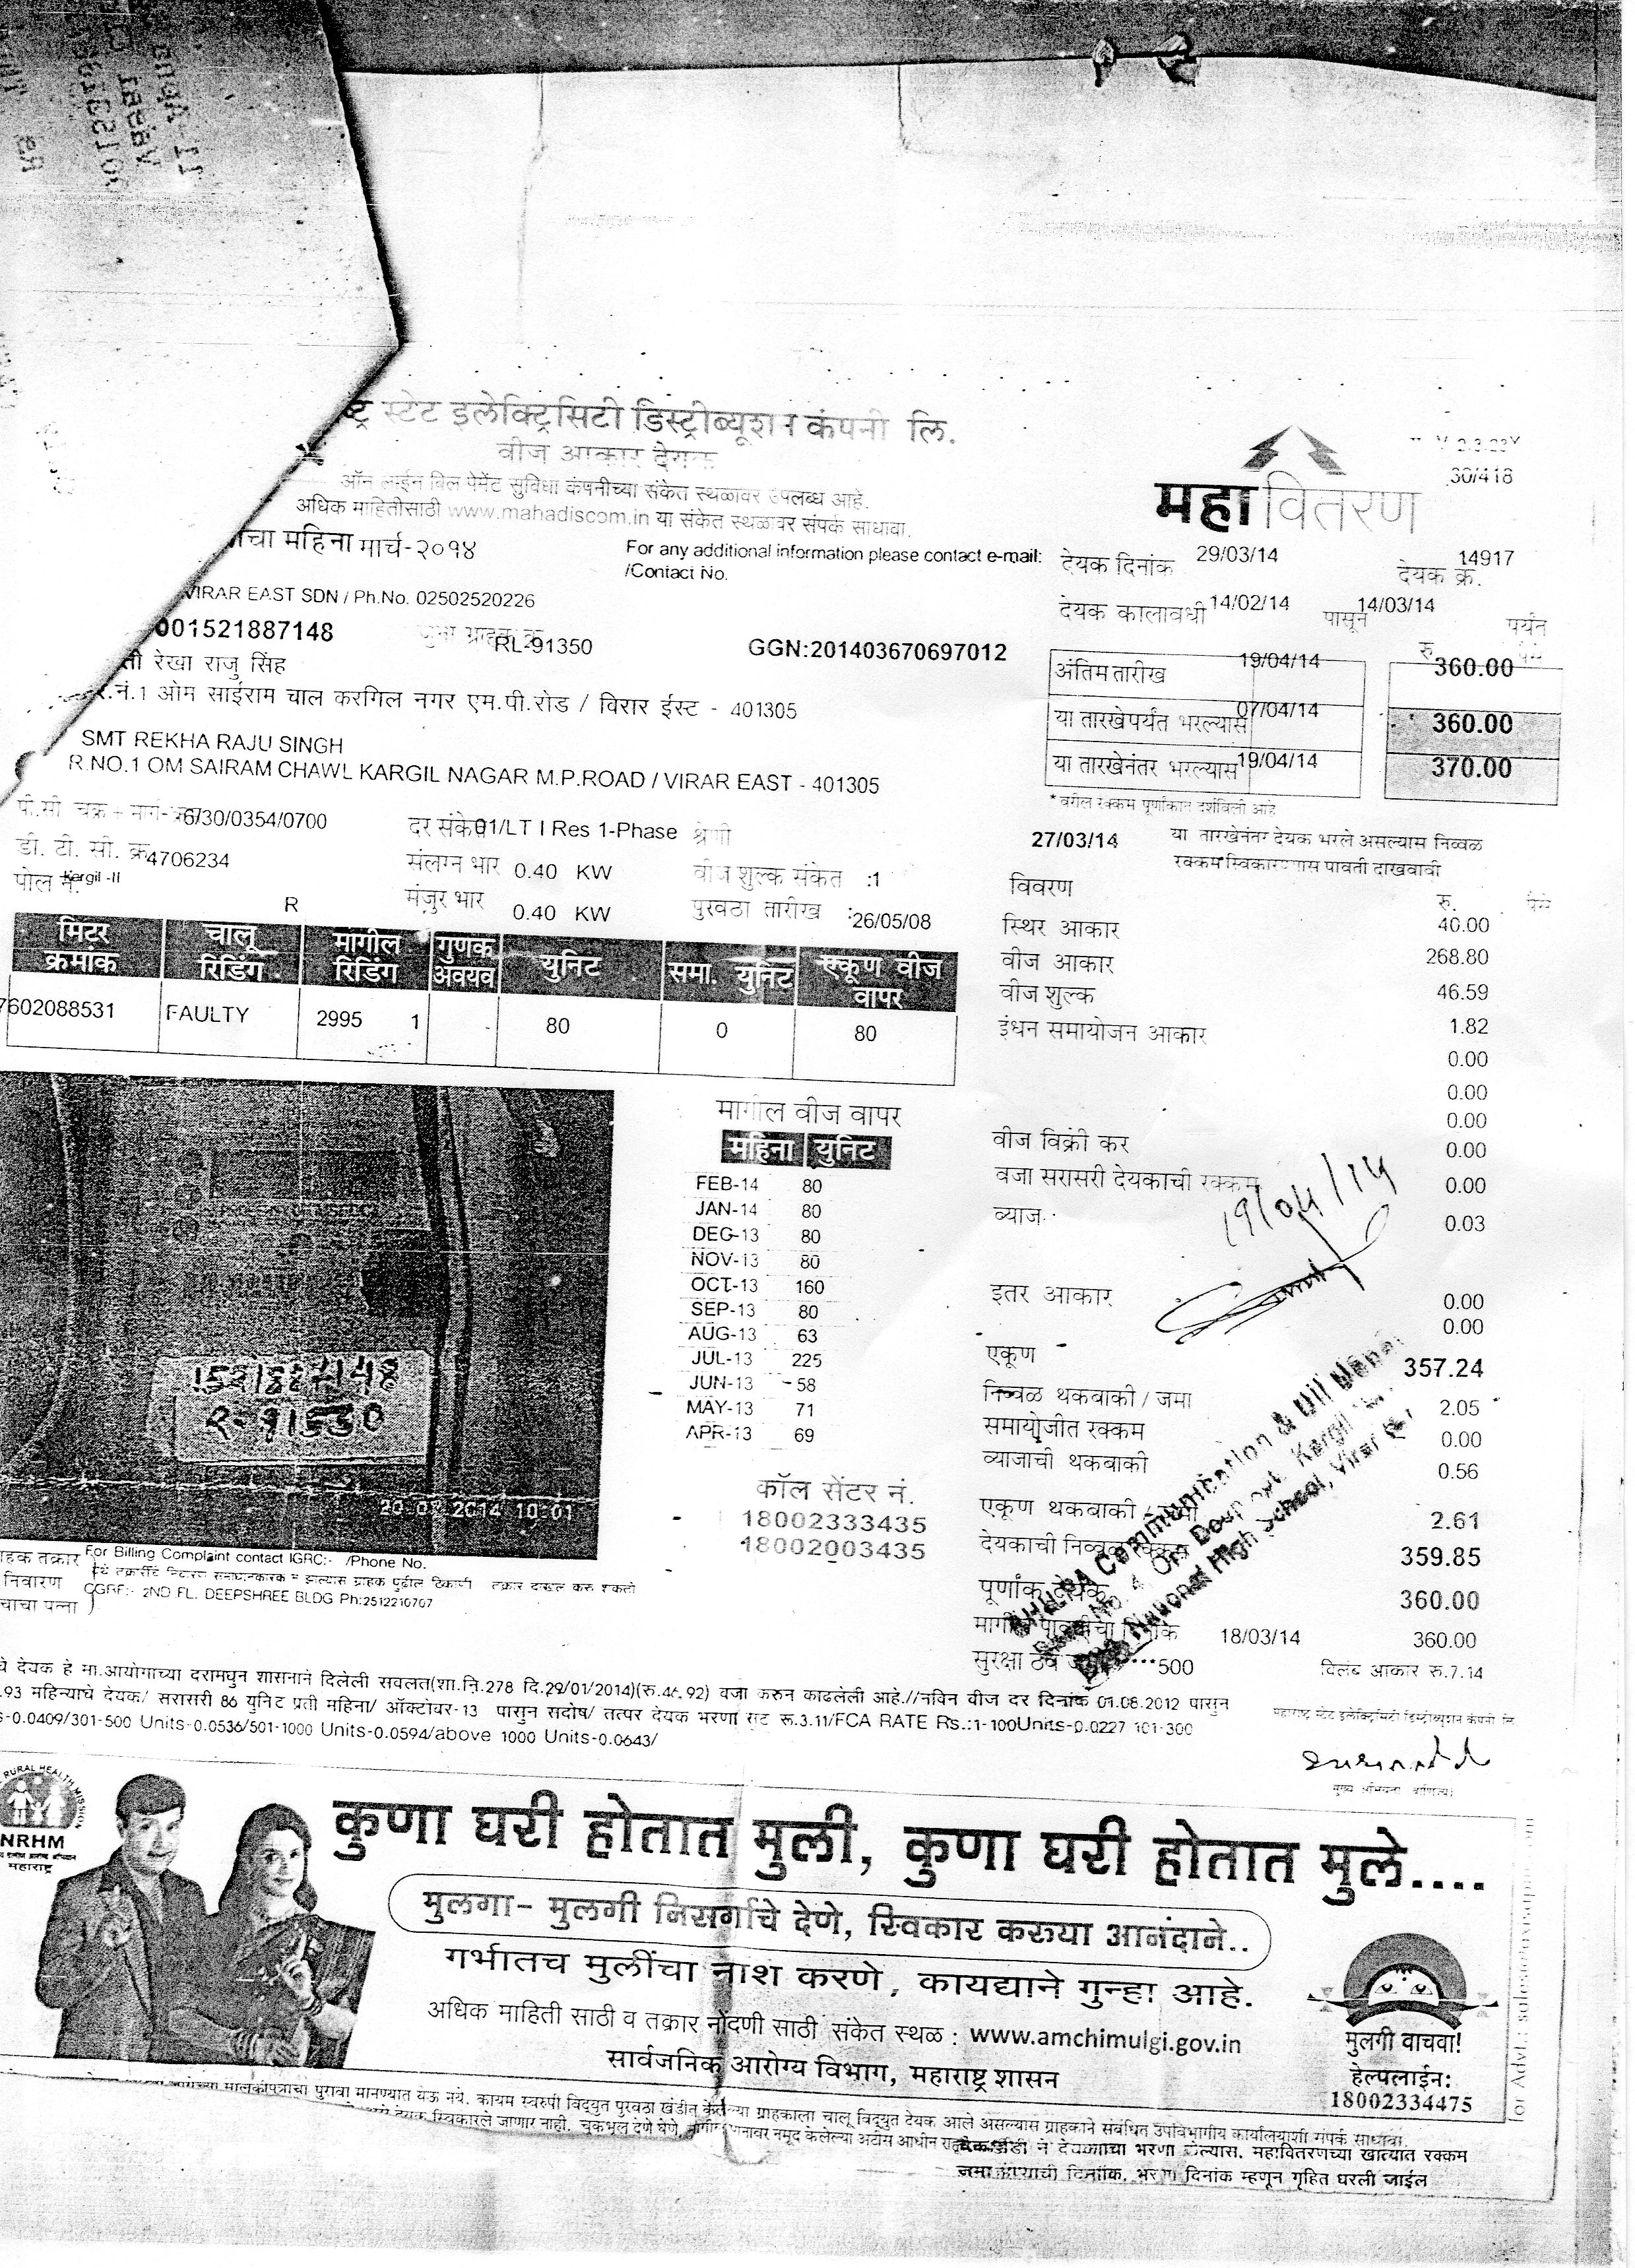 स्टेट इलेक्ट्रिसिटी डिस्ट्रीब्यूशन कंपनी लि.
वीज आकार देयक
ऑन लाईन बिल पेमेंट सुविधा कंपनीच्या संकेत स्थळावर उपलब्ध आहे.
अधिक माहितीसाठी www.mahadiscom.in या संकेत स्थळावर संपर्क साधावा.
महिना मार्च-२०१४
For any additional information please contact e-mail:
/Contact No.
महावितरण
30/418
देयक दिनांक 29/03/14 देयक क्र. 14917
देयक कालावधी 14/02/14 पासून 14/03/14 पर्यंत
VIRAR EAST SDN / Ph.No. 02502520226
001521887148 RL-91350 GGN:201403670697012
रेखा राजु सिंह
र.नं.1 ओम साईराम चाल करगिल नगर एम.पी.रोड / विरार ईस्ट - 401305
SMT REKHA RAJU SINGH
R.NO.1 OM SAIRAM CHAWL KARGIL NAGAR M.P.ROAD / VIRAR EAST - 401305
रु.
अंतिम तारीख 19/04/14 360.00
या तारखेपर्यंत भरल्यास 07/04/14 360.00
या तारखेनंतर भरल्यास 19/04/14 370.00
* वरील रक्कम पूर्णांकात दर्शविली आहे
27/03/14 या तारखेनंतर देयक भरले असल्यास निव्वळ
पावती दाखवावी
6/30/0354/0700 दर संकेत 01/LT I Res 1-Phase श्रेणी
डी. टी. सी. क्र 4706234 संलग्न भार 0.40 KW वीज शुल्क संकेत :1
पोल नं. Kargil -II मंजुर भार 0.40 KW पुरवठा तारीख :26/05/08
R
मिटर क्रमांक चालू रिडिंग मागील रिडिंग गुणक अवयव युनिट समा. युनिट एकूण वीज वापर
7602088531 FAULTY 2995 1 - 80 0 80
मागील वीज वापर
महिना युनिट
FEB-14 80
JAN-14 80
DEC-13 80
NOV-13 80
OCT-13 160
SEP-13 80
AUG-13 63
JUL-13 225
JUN-13 58
MAY-13 71
APR-13 69
कॉल सेंटर नं.
18002333435
18002003435
विवरण रु.
स्थिर आकार 40.00
वीज आकार 268.80
वीज शुल्क 46.59
इंधन समायोजन आकार 1.82
0.00
0.00
0.00
वीज विक्री कर 0.00
वजा सरासरी देयकाची रक्कम 0.00
व्याज 0.03
19/04/14
इतर आकार 0.00
0.00
एकूण 357.24
निव्वळ थकबाकी / जमा 2.05
समायोजीत रक्कम 0.00
व्याजाची थकबाकी 0.56
एकूण थकबाकी / 2.61
देयकाची निव्वळ रक्कम 359.85
पूर्णांक देयक 360.00
18/03/14 360.00
सुरक्षा ठेव 500 विलंब आकार रु.7.14
Communication
National High School, Virar
1521887148
20 2014 10:01
For Billing Complaint contact IGRC:- /Phone No.
CGRF:- 2ND FL. DEEPSHREE BLDG Ph:2512210707
देयक हे मा.आयोगाच्या दरामधुन शासनाने दिलेली सवलत(शा.नि.278 दि.29/01/2014)(रु.46.92) वजा करुन काढलेली आहे.//नविन वीज दर दिनांक 01.08.2012 पासुन
.93 महिन्याचे देयक/ सरासरी 86 युनिट प्रती महिना/ ऑक्टोबर-13 पासुन सदोष/ तत्पर देयक भरणा सुट रू.3.11/FCA RATE Rs.:1-100Units-0.0227 101-300
s-0.0409/301-500 Units-0.0536/501-1000 Units-0.0594/above 1000 Units-0.0643/
महाराष्ट्र स्टेट इलेक्ट्रिसिटी डिस्ट्रीब्युशन कंपनी लि
RURAL HEALTH MISSION
NRHM
महाराष्ट्र
कुणा घरी होतात मुली, कुणा घरी होतात मुले....
मुलगा- मुलगी निसर्गाचे देणे, स्विकार करुया आनंदाने..
गर्भातच मुलींचा नाश करणे, कायद्याने गुन्हा आहे.
अधिक माहिती साठी व तक्रार नोंदणी साठी संकेत स्थळ : www.amchimulgi.gov.in
सार्वजनिक आरोग्य विभाग, महाराष्ट्र शासन
मुलगी वाचवा!
हेल्पलाईन:
18002334475
पुरावा मानण्यात येऊ नये. कायम स्वरुपी विद्युत पुरवठा खंडीत केलेल्या ग्राहकाला चालू विद्युत देयक आले असल्यास ग्राहकाने संबंधित उपविभागीय कार्यालयाशी संपर्क साधावा
स्विकारले जाणार नाही. चुकभूल देणे घेणे
ने देयकाचा भरणा केल्यास. महावितरणच्या खात्यात रक्कम
दिनांक म्हणून गृहित धरली जाईल